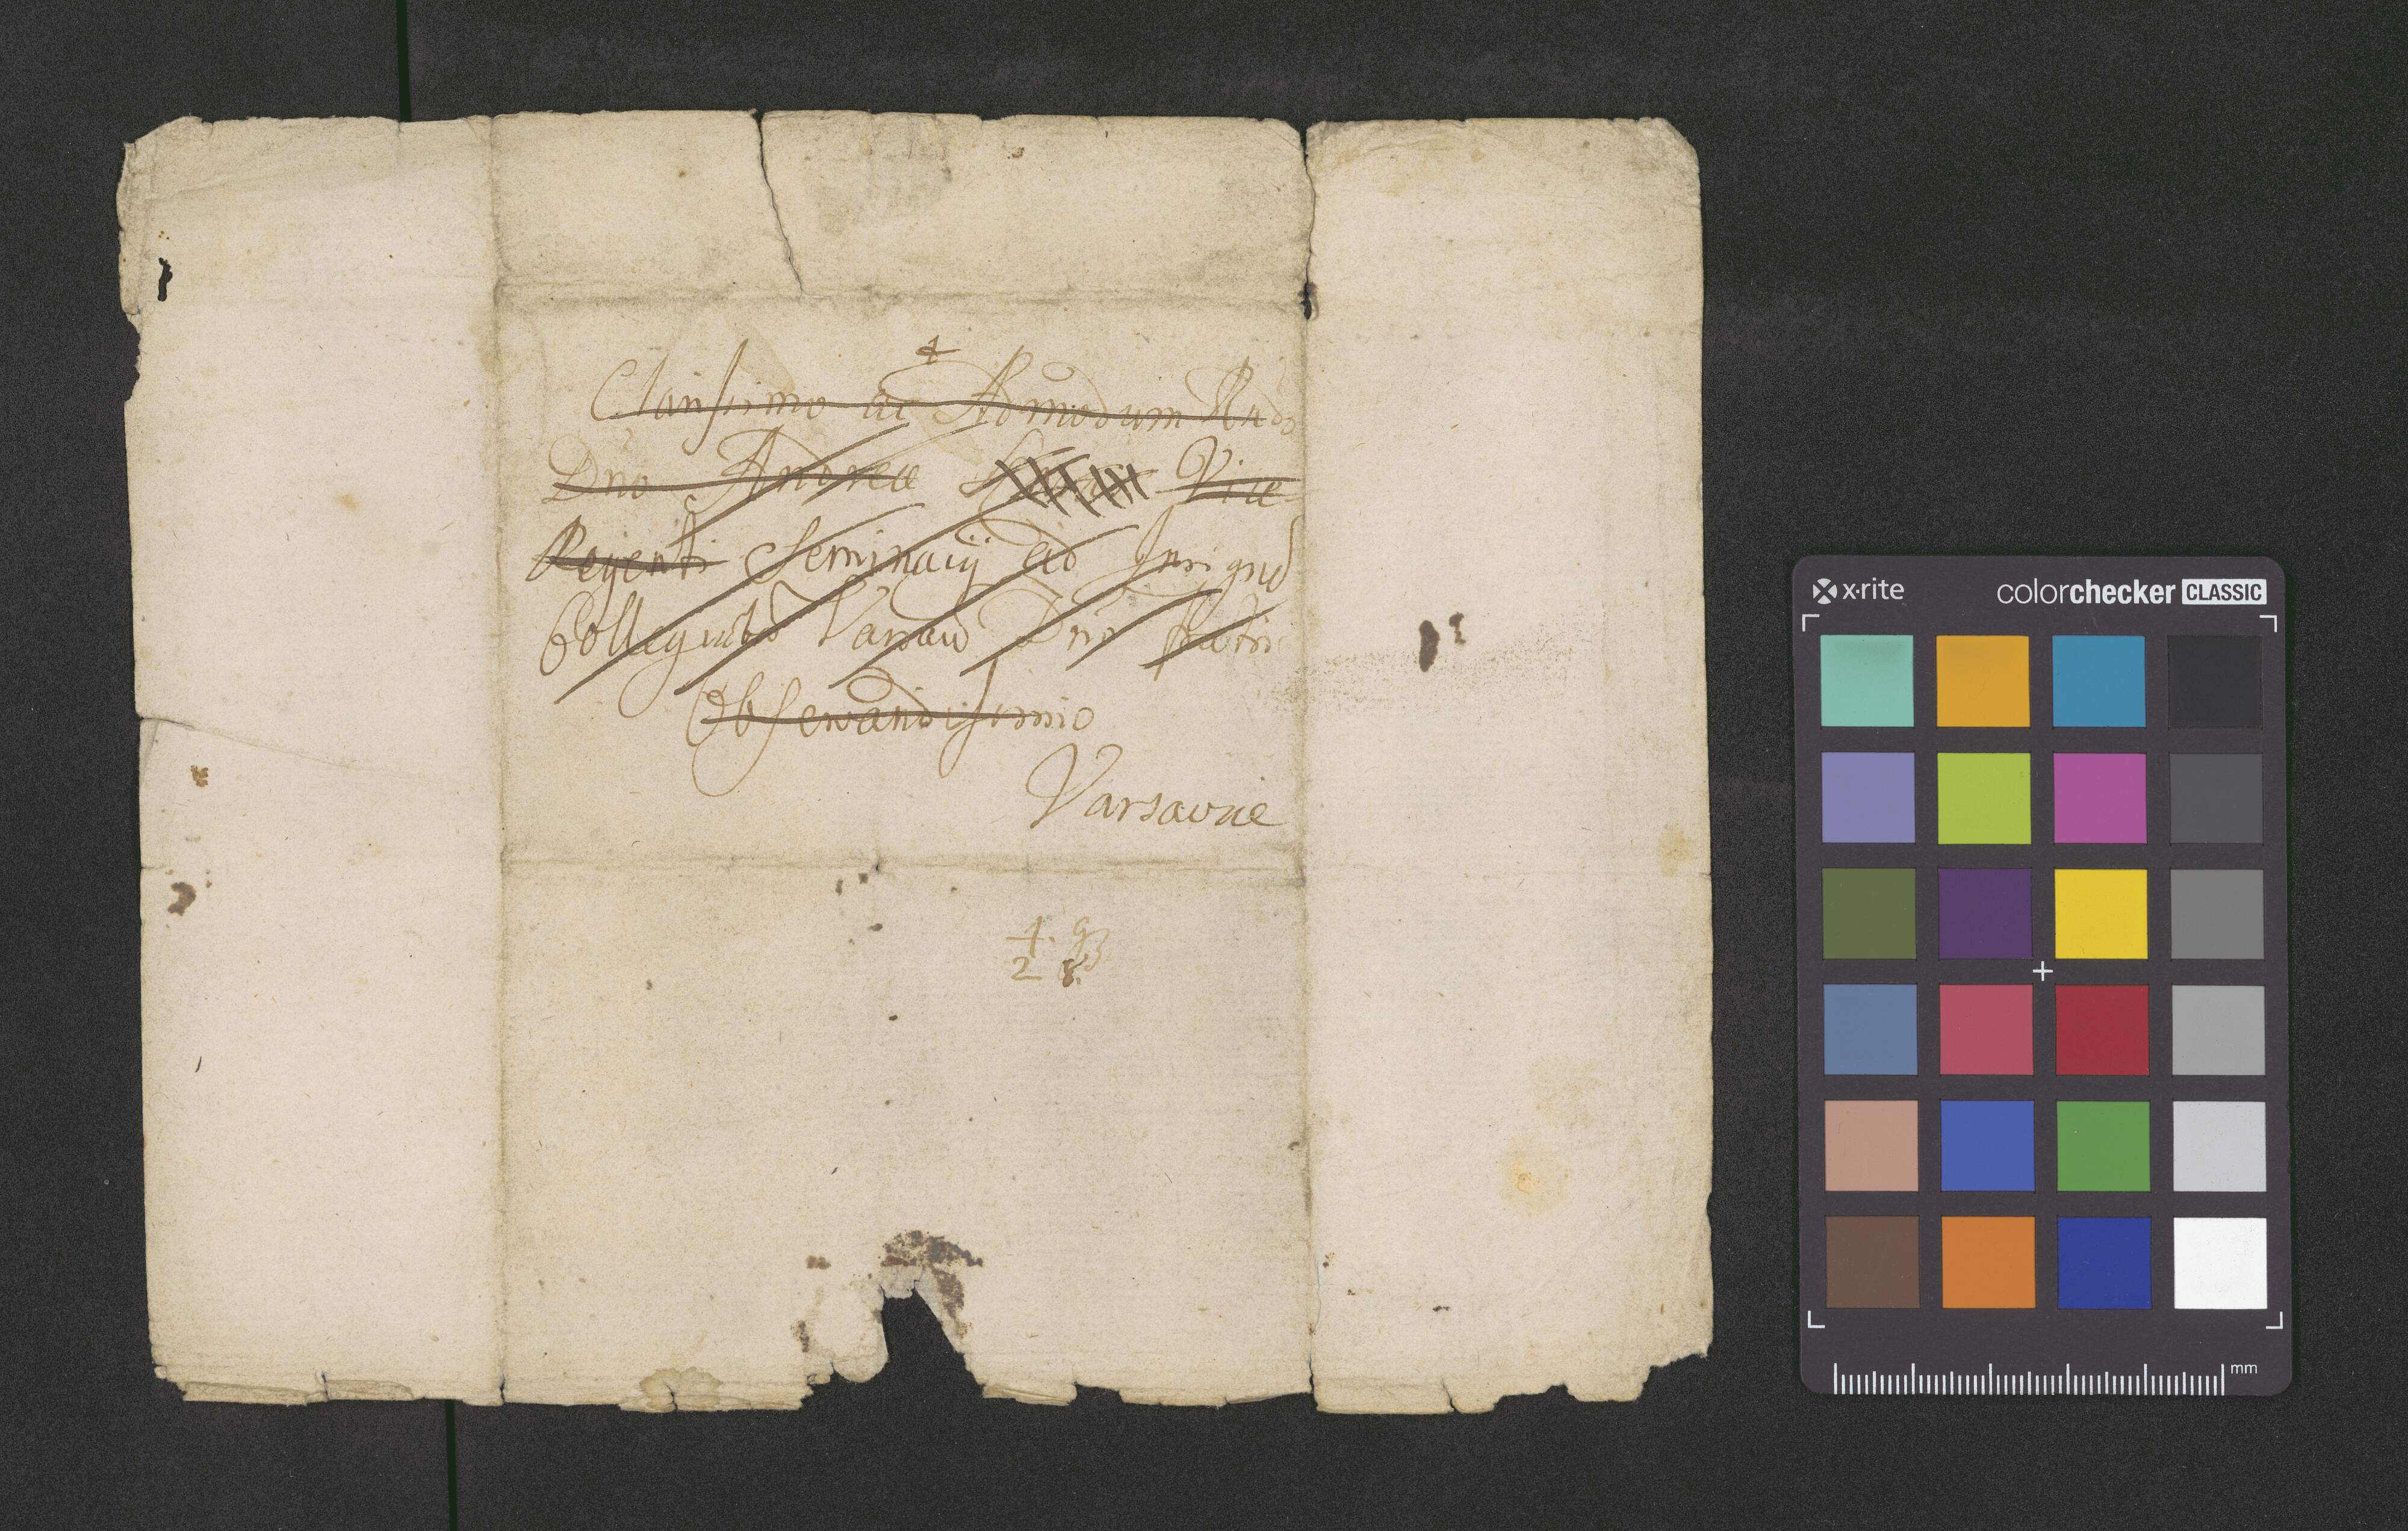 Clarissimo ac Admodum Rndo
Dno Andreae Vice
Regenti Seminarij ad Insigne
Collegiatā Varsav Dno Fratri
Observandissimo
Varsaviae
1. g
2 8.
x·rite colorchecker CLASSIC
mm